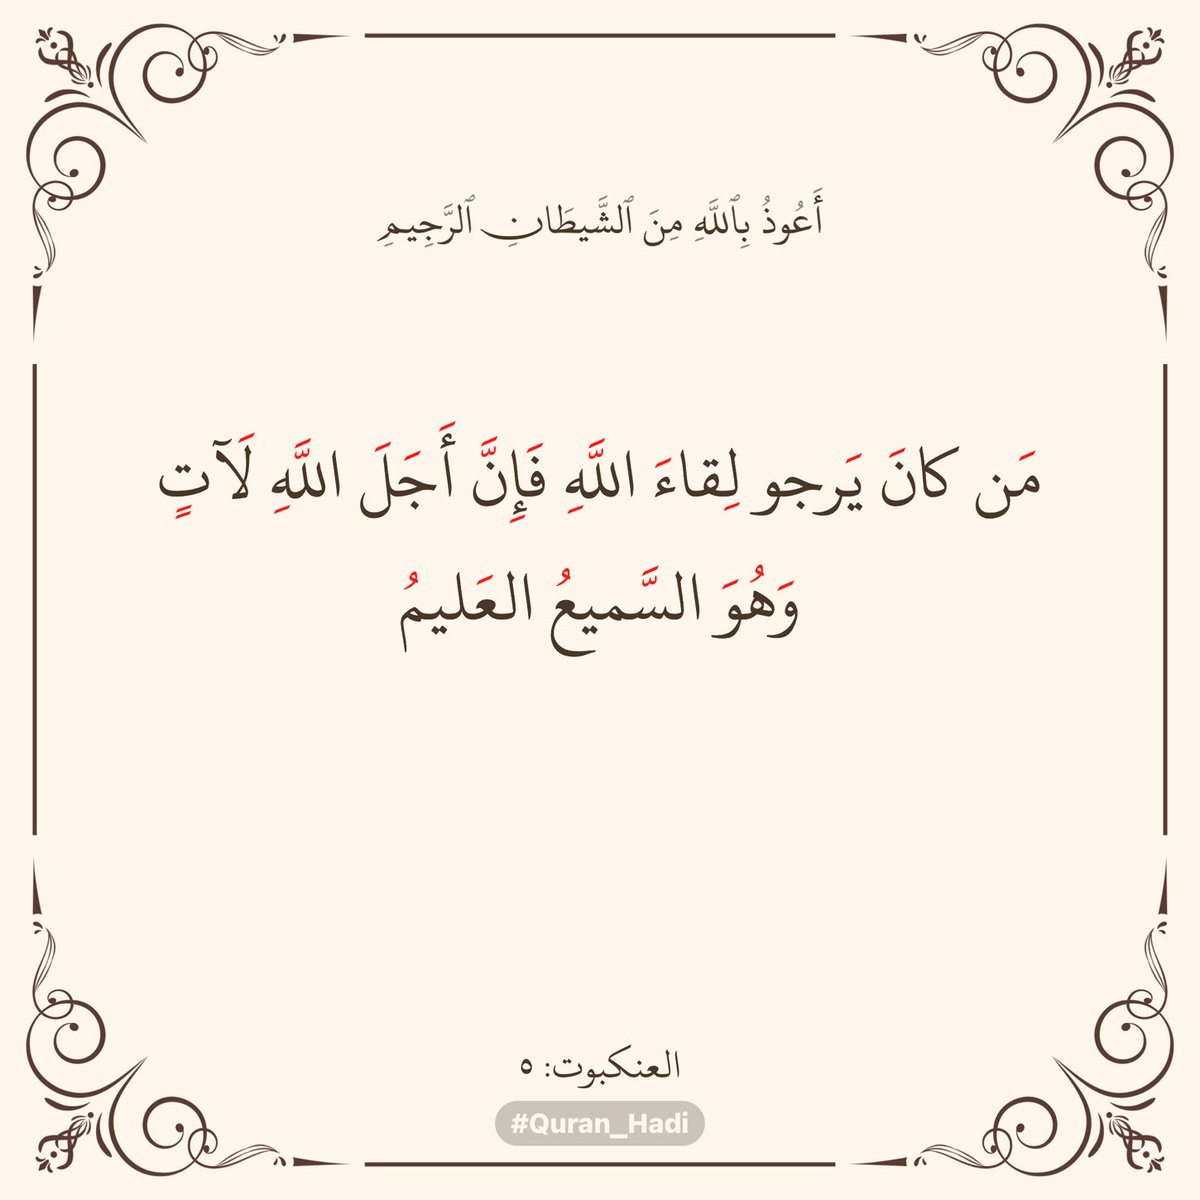 أَعُوذُ بِٱللَّهِ مِنَ ٱلشَّيطَانِ ٱلرَّجِيمِ
مَن كانَ يَرجو لِقاءَ اللَّهِ فَإِنَّ أَجَلَ اللَّهِ لَآتٍ
وَهُوَ السَّميعُ العَليمُ
العنكبوت: ٥
#Quran_Hadi